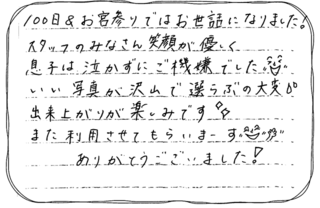 100日&お宮参りではお世話になりました!
スタッフのみなさん笑顔が優しく
息子は泣かずにご機嫌でした
いい写真が沢山で選ぶの大変
出来上がりが楽しみです
また利用させてもらいまーす
ありがとうございました!